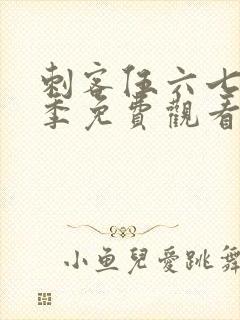 刺客伍六七
季免費觀看
小鱼兒愛跳舞